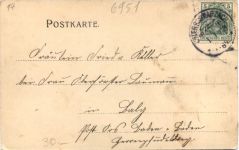 6951
POSTKARTE.
Fräulein Frieda Käller
bei Frau Oberförster Baumann
in Balg
Post Oos Baden-Baden
30.-